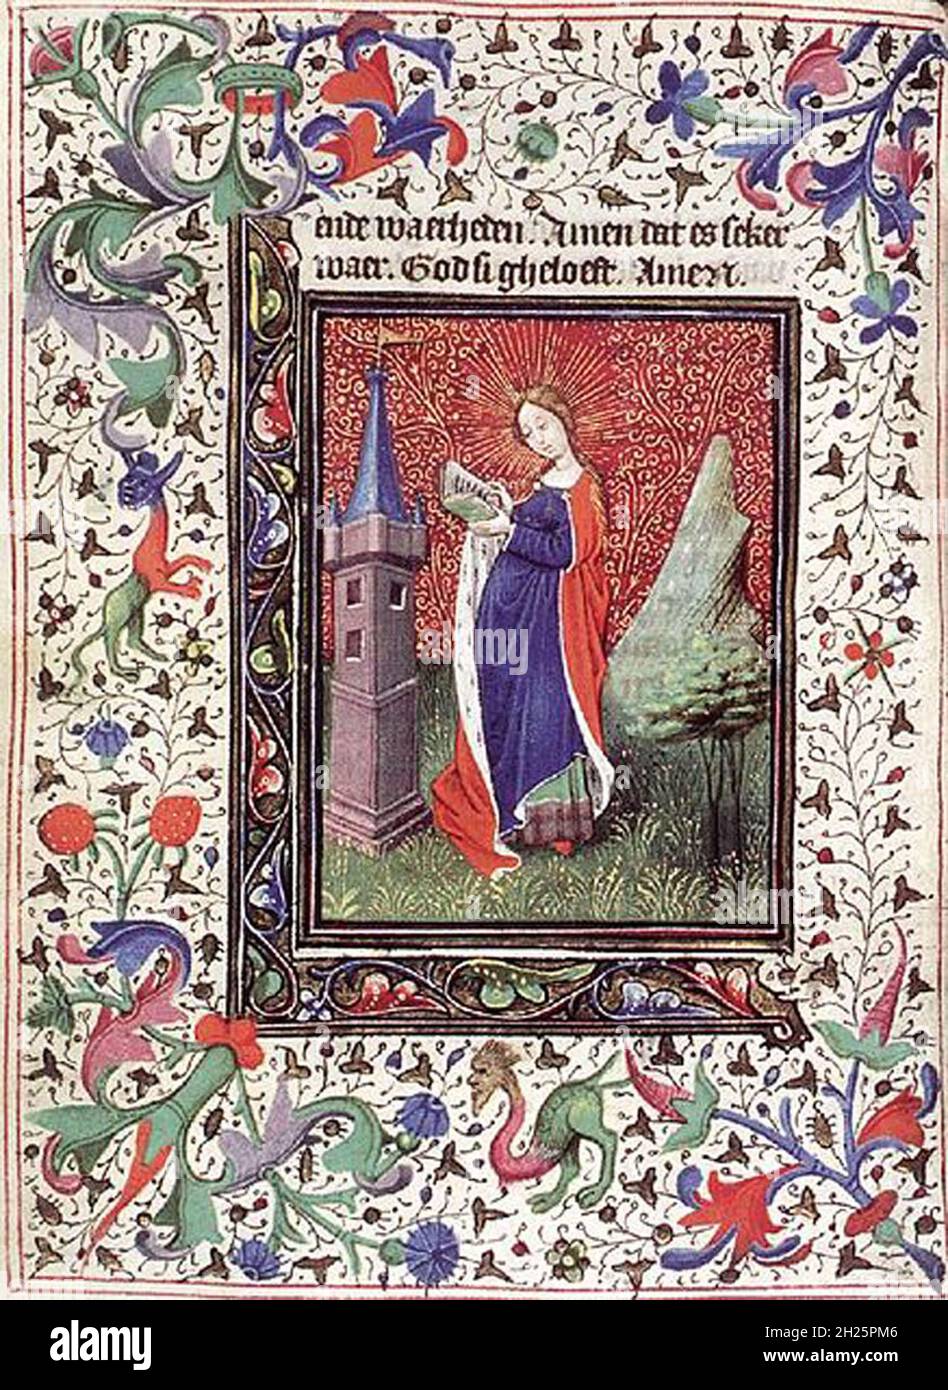 ende waerheden. Amen dat es seker
waer. God si gheloeft. Amen.
alamy
Image ID: 2H25PM6
www.alamy.com